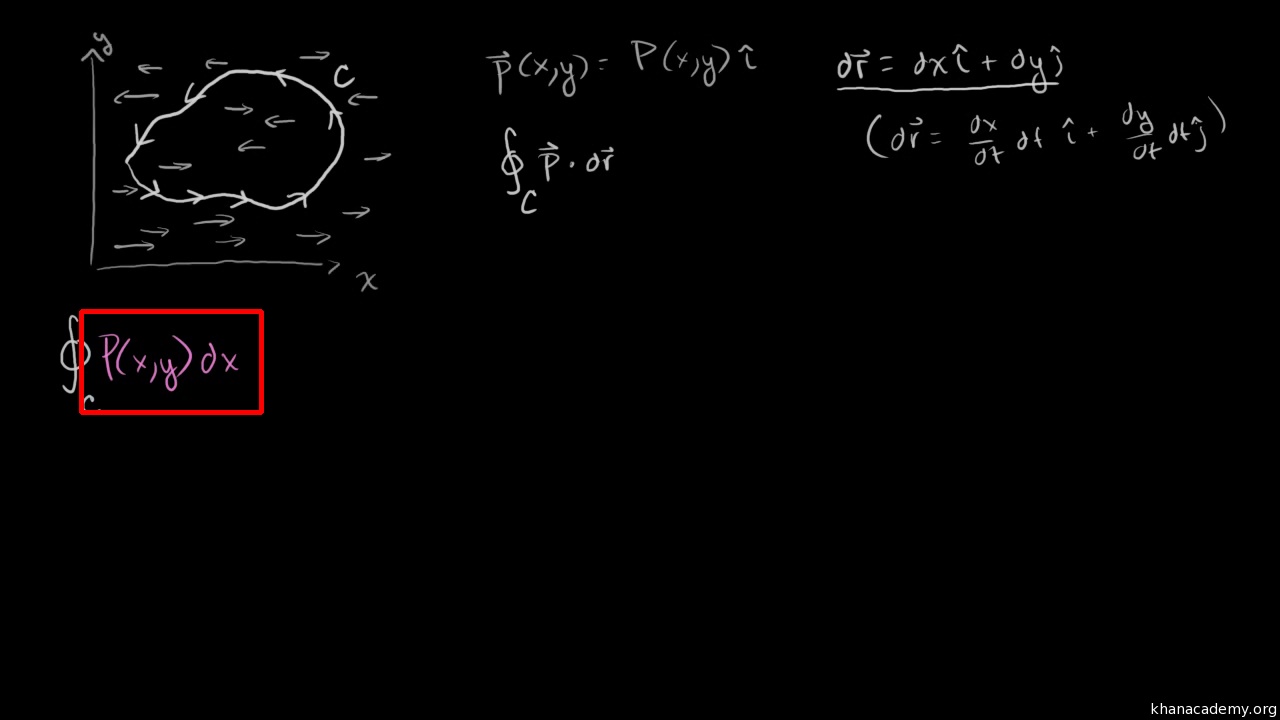 y
C
x
p⃗(x,y) = P(x,y) î
∮ p⃗ · dr⃗
C
dr⃗ = dx î + dy ĵ
(dr⃗ = dx/dt dt î + dy/dt dt ĵ)
∮ P(x,y) dx
C
khanacademy.org